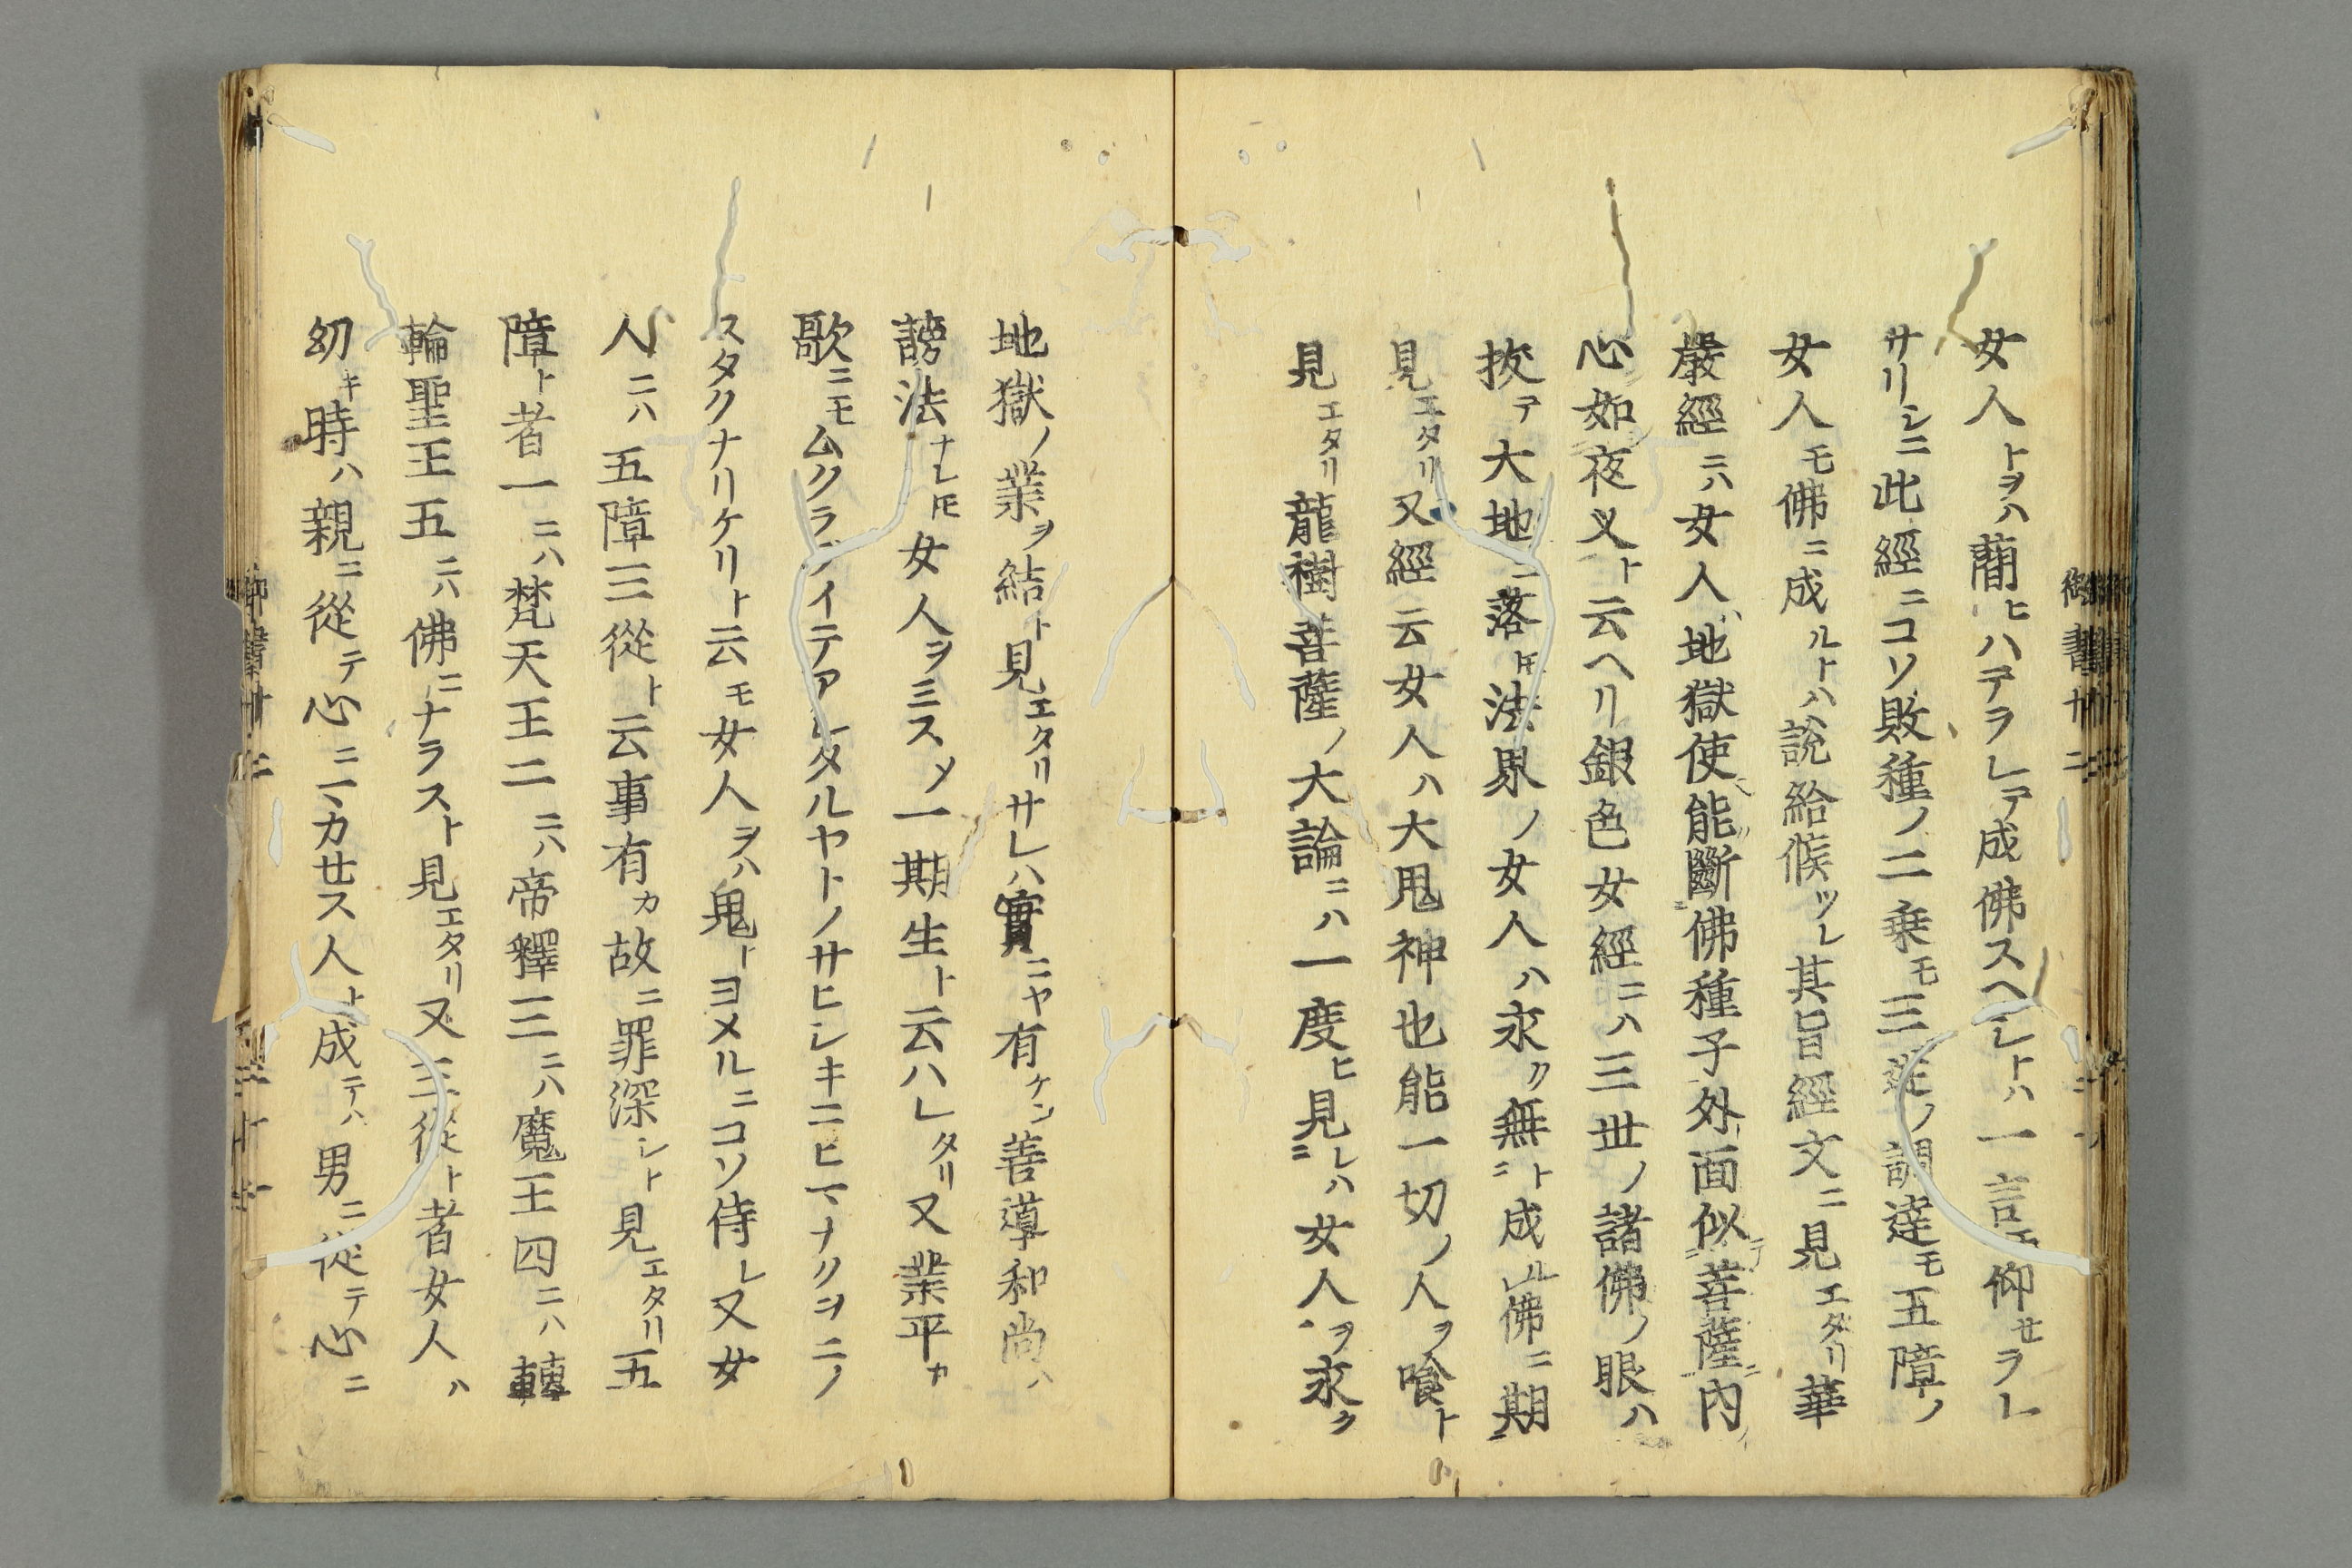 女人トヲハ蕳ヒハテラレテ成佛スヘシトハ一言モ仰セラレ
サリシニ此經ニコソ敗種ノ二乗モ三逆ノ調達モ五障ノ
女人モ佛ニ成ルトハ説給候ツレ其旨經文ニ見エタリ華
嚴經ニハ女人ハ地獄使能斷佛種子外面似菩薩内
心如夜叉ト云ヘリ銀色女經ニハ三世ノ諸佛ノ眼ハ
抜テ大地ニ落トモ法界ノ女人ハ永ク無ニト成ル佛ニ期
見エタリ又經云女人ハ大鬼神也能一切ノ人ヲ喰ト
見エタリ龍樹菩薩ノ大論ニハ一度ヒ見レハ女人ヲ永ク
地獄ノ業ヲ結ト見エタリサレハ實ニヤ有ケン善導和尚ハ
謗法ナレトモ女人ヲミスシテ一期生ト云ハレタリ又業平カ
歌ニモムクラヲイテアレタルヤトノサヒシキニヒマナクヲニノ
スタクナリケリト云モ女人ヲハ鬼トヨメルニコソ侍レ又女
人ニハ五障三從ト云事有カ故ニ罪深シト見エタリ五
障ト者一ニハ梵天王二ニハ帝釋三ニハ魔王四ニハ轉
輪聖王五ニハ佛ニナラスト見エタリ又三從ト者女人ハ
幼キ時ハ親ニ從テ心ニマカセス人ト成テハ男ニ從テ心ニ
御書廿二